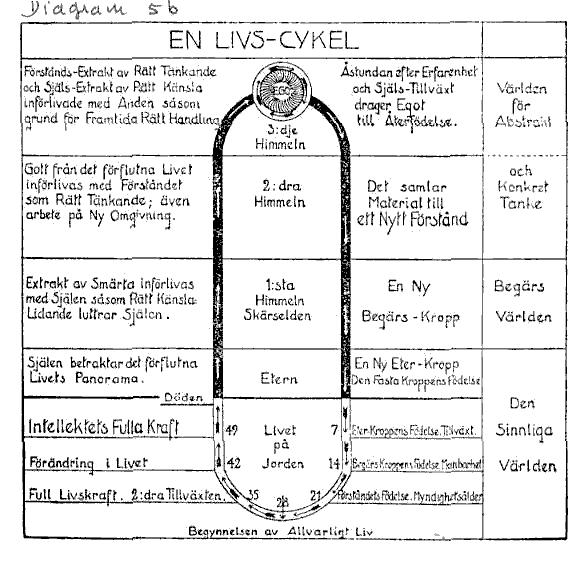 Diagram 5b
EN LIVS-CYKEL
Förstånds-Extrakt av Rätt Tänkande
och Själs-Extrakt av Rätt Känsla
införlivade med Anden såsom
grund för Framtida Rätt Handling
EGO
3:dje
Himmeln
Åstundan efter Erfarenhet
och Själs-Tillväxt
drager Egot
till Återfödelse.
Världen
för
Abstrakt
Gott från det förflutna Livet
införlivas med Förståndet
som Rätt Tänkande; även
arbete på Ny Omgivning.
2:dra
Himmeln
Det samlar
Material till
ett Nytt Förstånd
och
Konkret
Tanke
Extrakt av Smärta införlivas
med Själen såsom Rätt Känsla:
Lidande luttrar Själen.
1:sta
Himmeln
Skärselden
En Ny
Begärs-Kropp
Begärs
Världen
Själen betraktar det förflutna
Livets Panorama.
Etern
En Ny Eter-Kropp
Den Fasta Kroppens Födelse
Döden
Intellektets Fulla Kraft
49
Livet
på
Jorden
7
Eter-Kroppens Födelse. Tillväxt.
Den
Sinnliga
Världen
Förändring i Livet
42
14
Begärs Kroppens Födelse Manbarhet
Full Livskraft. 2:dra Tillväxten.
35
28
21
Förståndets Födelse. Myndighetsålder
Begynnelsen av Allvarligt Liv